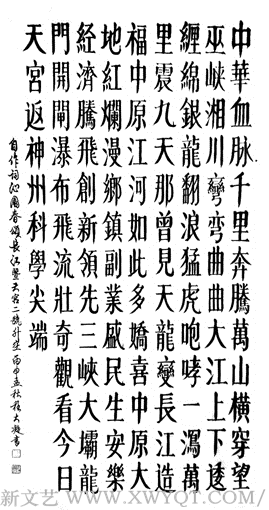 中華血脉千里奔騰萬山橫穿望
巫峽湘川彎弯曲曲大江上下逶
纏綿銀龍翻浪猛虎咆哮一瀉萬
里震九天那曾見天龍變長江造
福中原江河如此多嬌喜中原大
地紅爛漫鄉鎮副業盛民生安樂
經濟騰飛創新領先三峽大壩龍
門開閘瀑布飛流壯奇觀看今日
天宮返神州科學尖端
自作词沁園春頌長江暨天宮二號升空丙申孟秋大書
新文艺 WWW.XWYQT.COM